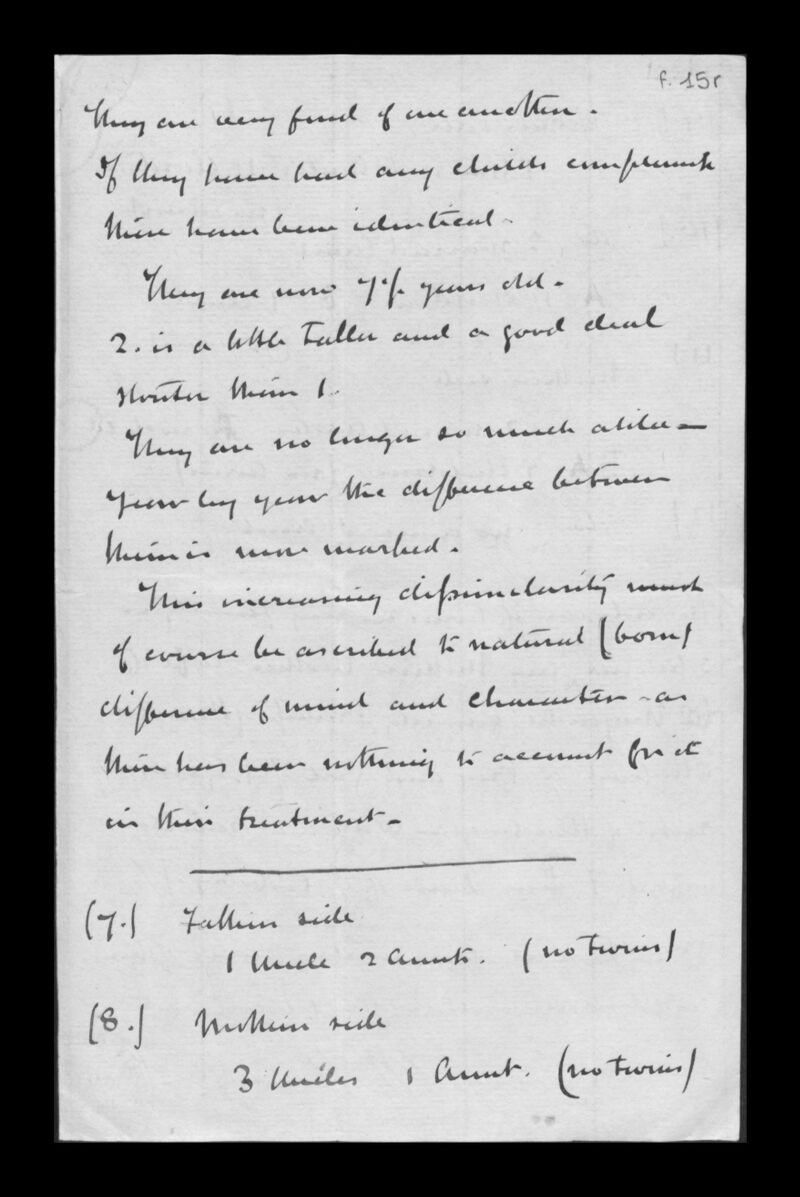 f. 15r
They are very fond of one another.
If they have had any childs complaints
these have been identical.
They are now 7½ years old.
2. is a little taller and a good deal
stouter than 1.
They are no longer so much alike —
year by year the difference between
them is more marked.
This increasing dissimilarity must
of course be ascribed to natural (born)
difference of mind and character - as
there has been nothing to account for it
in their treatment -
(7.) Fathers side
1 Uncle 2 Aunts. (no twins)
(8.) Mothers side
3 Uncles 1 Aunt. (no twins)